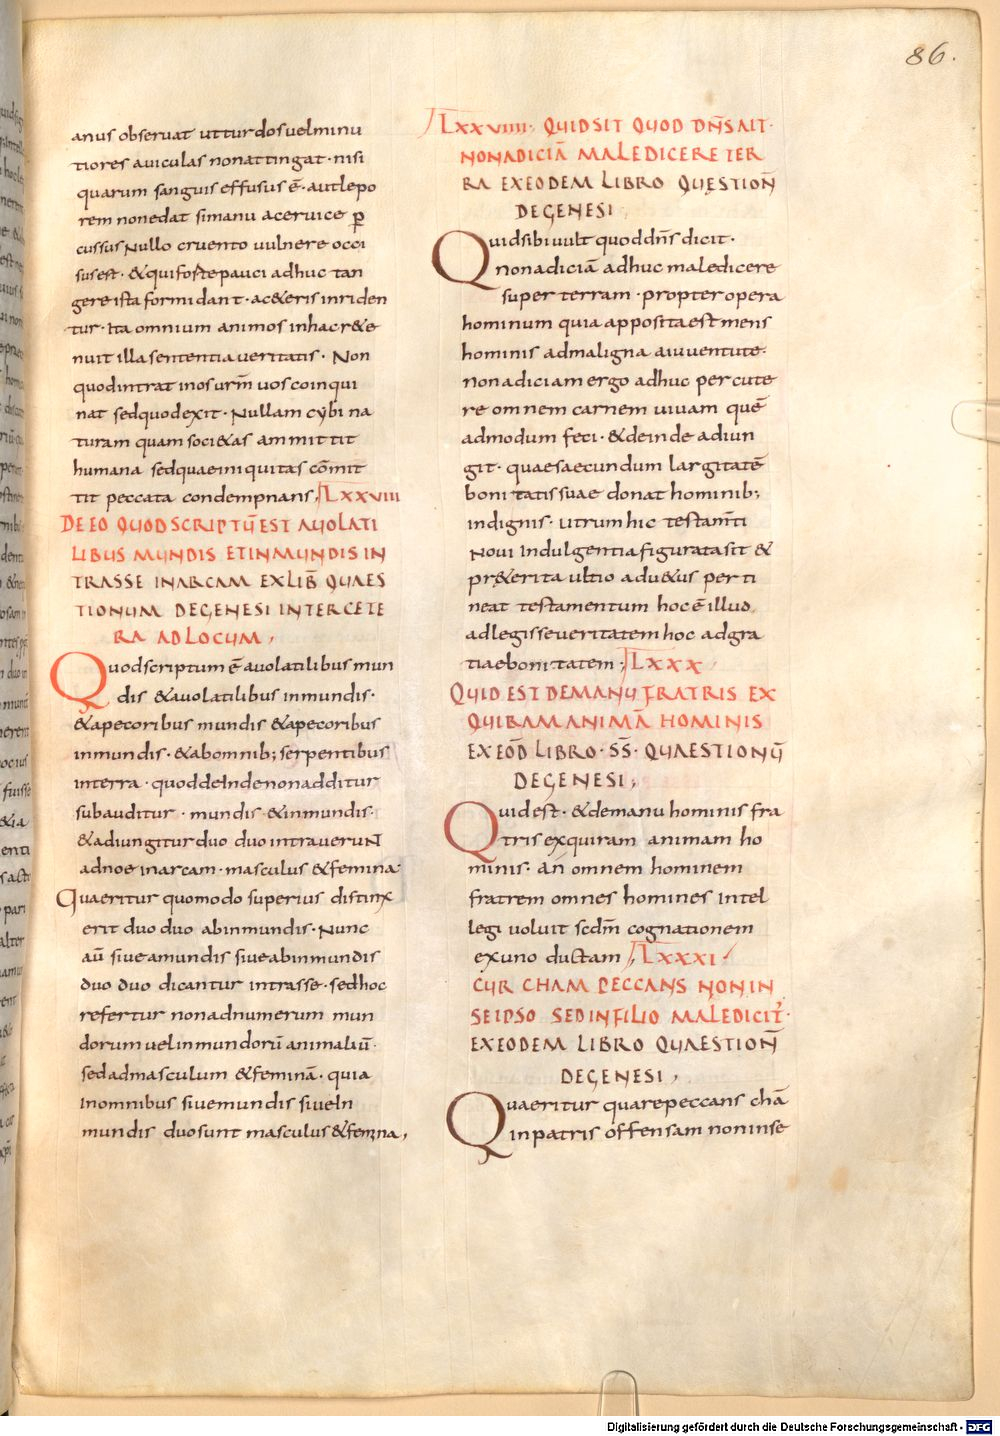 86.
anus observat ut turdos uel minu
tiores auiculas non attingat · nisi
quarum sanguis effusus ē · aut lepo
rem non edat si manu a ceruice ꝑ
cussus Nullo cruento uulnere occi
sus est · & qui forte pauci adhuc tan
gere ista formidant · a c&eris inriden
tur · Ita omnium animos in hac r& e
nuit illa sententia ueritatis · Non
quod intrat in os urm̄ uos coinqui
nat sed quod exit · Nullam cybi na
turam quam soci&as ammittit
humana sed quae iniquitas cōmit
tit peccata condempnans, LXXVIII
DE EO QUOD SCRIPTŪ EST A UOLATI
LIBUS MUNDIS ET INMUNDIS IN
TRASSE IN ARCAM EX LIB̄ QUAES
TIONUM DE GENESI INTER CETE
RA AD LOCUM,
Quod scriptum ē a uolatilibus mun
dis & a uolatilibus inmundis ·
& a pecoribus mundis & a pecoribus
inmundis · & ab omnib; serpentibus
in terra · quod deInde non additur
subauditur · mundis & inmundis ·
& adiungitur duo duo intraueruNT
ad noe in arcam · masculus & femina ·
Quaeritur quomodo superius distinx
erit duo duo ab inmundis · Nunc
aū siue a mundis siue ab inmundis
duo duo dicantur intrasse · sed hoc
refertur non ad numerum mun
dorum uel inmundorū animaliū ·
sed ad masculum & feminā · quia
In omnibus siue mundis siue In
mundis duo sunt masculus & femina,
LXXVIIII · QUID SIT QUOD DN̄S AIT ·
NON ADICIĀ MALEDICERE TER
RA EX EODEM LIBRO QUĘSTION̄
DE GENESI,
Quid sibi uult quod dn̄s dicit ·
non adiciā adhuc maledicere
super terram · propter opera
hominum quia apposita est mens
hominis ad maligna a iuuentute ·
non adiciam ergo adhuc percute
re omnem carnem uiuam quē
admodum feci · & deinde adiun
git · quae saecundum largitatē
bonitatis suae donat hominib;
indignis · utrum hic testam̄ti
Noui Indulgentia figurata sit &
pr&erita ultio ad u&us perti
neat testamentum hoc ē illud
ad legis seueritatem hoc ad gra
tiae bonitatem; LXXX
QUID EST DE MANU FRATRIS EX
QUIRAM ANIMĀ HOMINIS
EX EOD̄ LIBRO · SS̄ · QUAESTIONŪ
DE GENESI;
Quid est · & de manu hominis fra
tris exquiram animam ho
minis · an̄ omnem hominem
fratrem omnes homines intel
legi uoluit scdm̄ cognationem
ex uno ductam, LXXXI
CUR CHAM PECCANS NON IN
SE IPSO SED IN FILIO MALEDICIT ·
EX EODEM LIBRO QUAESTION̄
DE GENESI,
Quaeritur quare peccans chā
in patris offensam non in se
Digitalisierung gefördert durch die Deutsche Forschungsgemeinschaft - DFG